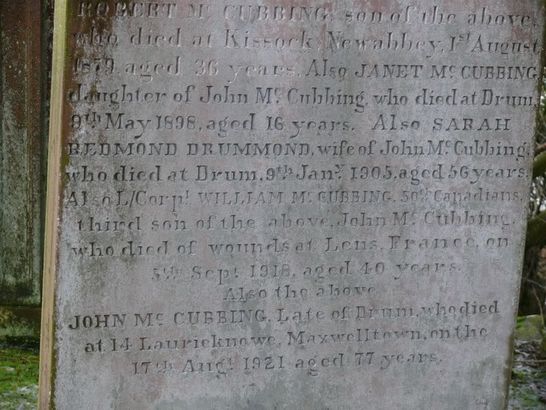 ROBERT Mc CUBBING, son of the above,
who died at Kissock, Newabbey, 1st August
1879, aged 36 years. Also JANET Mc CUBBING
daughter of John Mc Cubbing, who died at Drum,
9th May 1898, aged 16 years. Also SARAH
REDMOND DRUMMOND, wife of John Mc Cubbing,
who died at Drum, 9th Jany. 1905, aged 56 years.
Also L/Corpl. WILLIAM Mc CUBBING, 50th Canadians,
third son of the above, John Mc Cubbing,
who died of wounds at Lens, France, on
5th Sept. 1918, aged 40 years.
Also the above
JOHN Mc CUBBING, Late of Drum, who died
at 14 Laurieknowe, Maxwelltown, on the
17th Augt. 1921 aged 77 years.